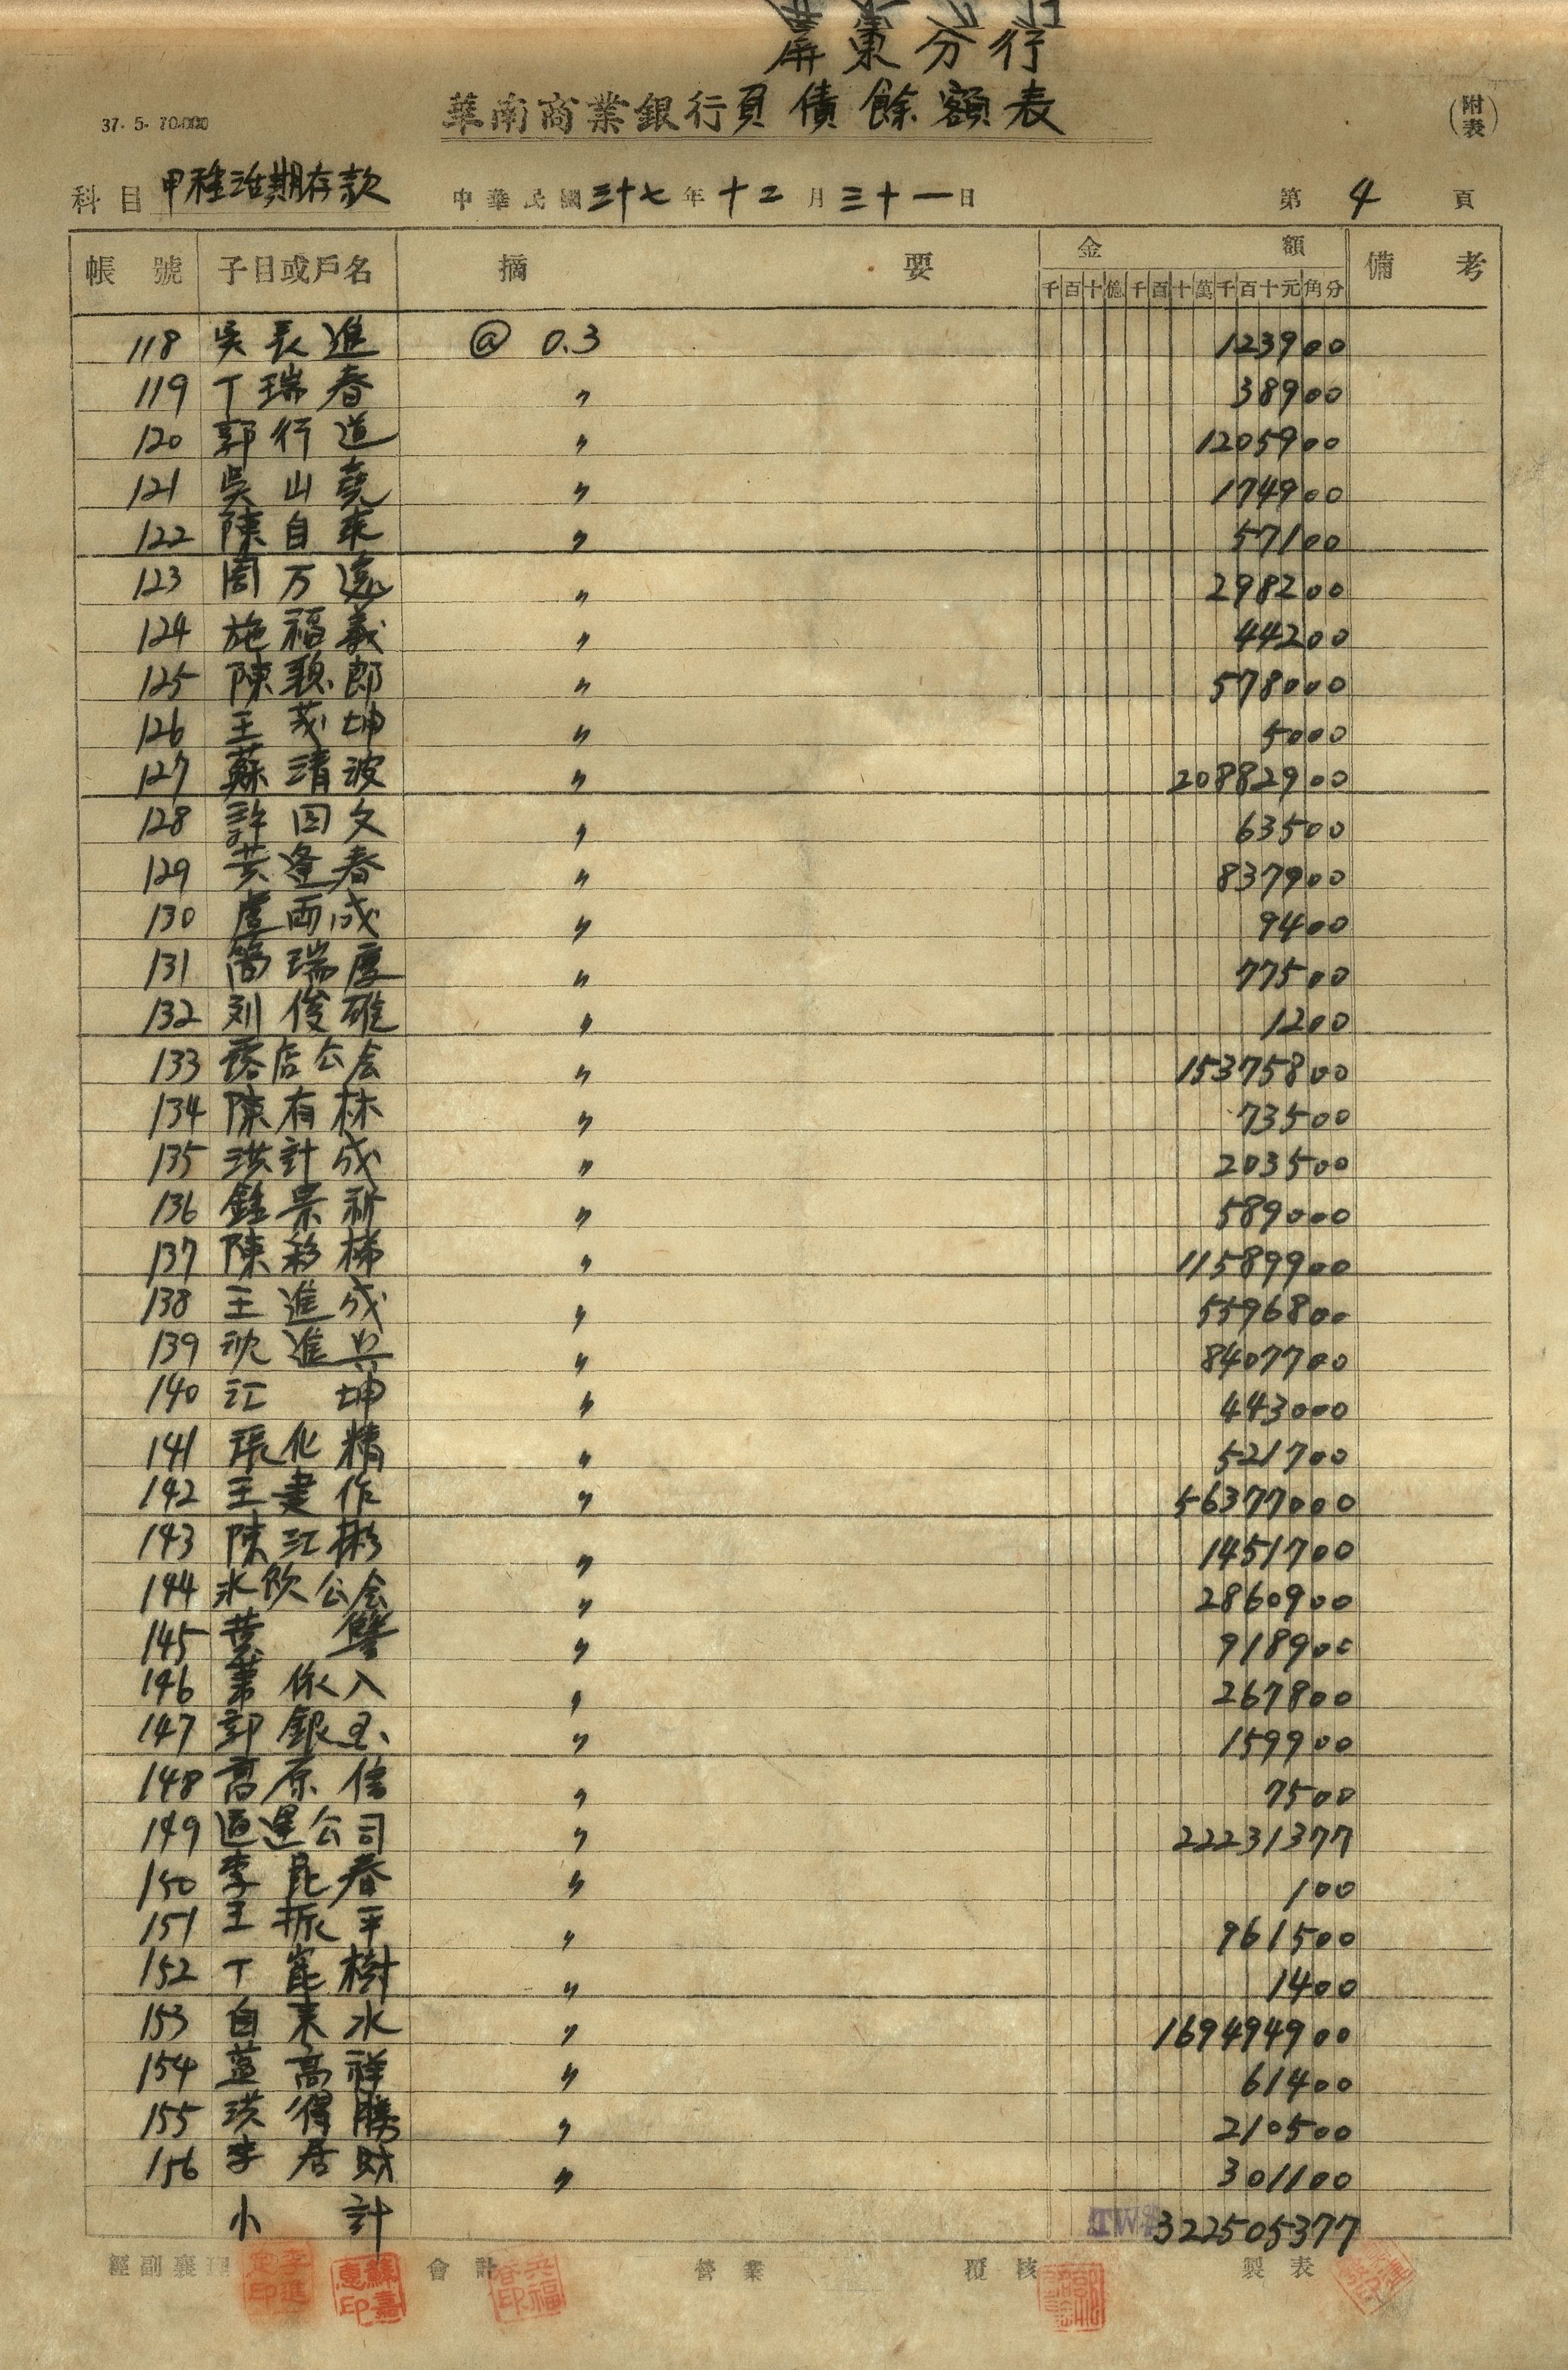 屏東分行
華南商業銀行負債餘額表
37. 5. 70.000
(附表)
科目 甲種活期存款 中華民國三十七年十二月三十一日 第4頁
帳號 子目或戶名 摘要 金額 備考
千百十億千百十萬千百十元角分
118 吳長進 @ 0.3 123900
119 丁瑞春 〃 38900
120 郭行道 〃 1205900
121 吳山堯 〃 174900
122 陳自來 〃 57100
123 周万遠 〃 298200
124 施福義 〃 44200
125 陳聰郎 〃 578000
126 王茂坤 〃 5000
127 蘇清波 〃 20882900
128 許因文 〃 63500
129 黃逢春 〃 837900
130 盧両成 〃 9400
131 簡瑞厚 〃 77500
132 刘俊雄 〃 1200
133 公会 〃 15375800
134 陳有林 〃 73500
135 洪計成 〃 203500
136 鍾景新 〃 589000
137 陳彩梯 〃 11589900
138 王進成 〃 5596800
139 沈進興 〃 8407700
140 江坤 〃 443000
141 張化精 〃 521700
142 王建作 〃 56377000
143 陳江彬 〃 1451700
144 氷飲公会 〃 2860900
145 黃雙 〃 918900
146 葉依入 〃 267800
147 郭銀玉 〃 159900
148 高原信 〃 7500
149 通運公司 〃 22231377
150 李昆春 〃 100
151 王振平 〃 961500
152 丁崑樹 〃 1400
153 自来水 〃 169494900
154 藍高祥 〃 61400
155 洪得勝 〃 210500
156 李居財 〃 301100
小計 322505377
經副襄理 會計 營業 覆核 製表